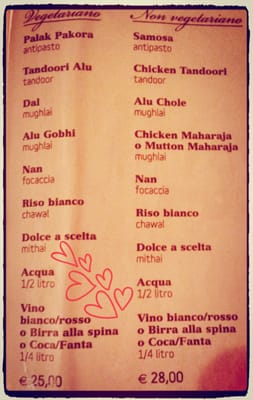 Vegetariano
Palak Pakora
antipasto
Tandoori Alu
tandoor
Dal
mughlai
Alu Gobhi
mughlai
Nan
focaccia
Riso bianco
chawal
Dolce a scelta
mithai
Acqua
1/2 litro
Vino
bianco/rosso
o Birra alla spina
o Coca/Fanta
1/4 litro
€ 25,00
Non vegetariano
Samosa
antipasto
Chicken Tandoori
tandoor
Alu Chole
mughlai
Chicken Maharaja
o Mutton Maharaja
mughlai
Nan
focaccia
Riso bianco
chawal
Dolce a scelta
mithai
Acqua
1/2 litro
Vino
bianco/rosso
o Birra alla spina
o Coca/Fanta
1/4 litro
€ 28,00